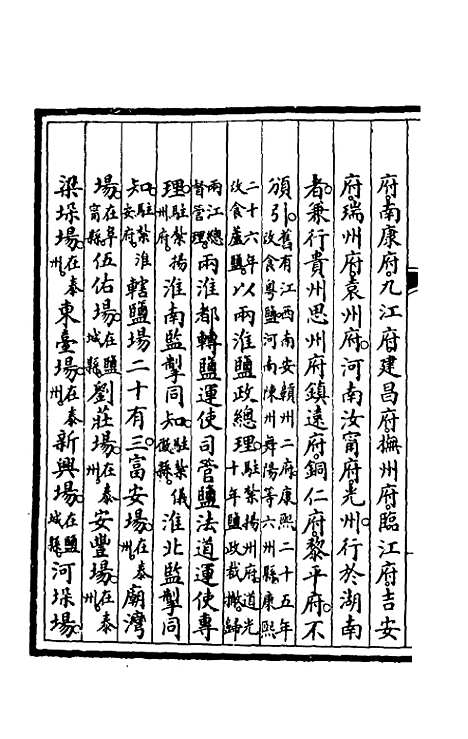 府南康府九江府建昌府撫州府臨江府吉安
府瑞州府袁州府河南汝甯府光州行於湖南
者兼行貴州思州府鎮遠府銅仁府黎平府不
頒引舊有江西南安贑州二府康熙二十五年
改食粵鹽河南陳州舞陽等六州縣康熙
二十六年
改食蘆鹽以兩淮鹽政總理駐紮揚州府道光
十年鹽政裁撤歸
兩江總
督管理兩淮都轉鹽運使司管鹽法道運使專
理駐紮揚
州府淮南監掣同知駐紮儀
徵縣淮北監掣同
知駐紮淮
安府轄鹽場二十有三富安場在泰
州廟灣
場在阜
甯縣伍佑場在鹽
城縣劉莊場在泰
州安豐場在泰
州
梁垛場在泰
州東臺場在泰
州新興場在鹽
城縣河垛場